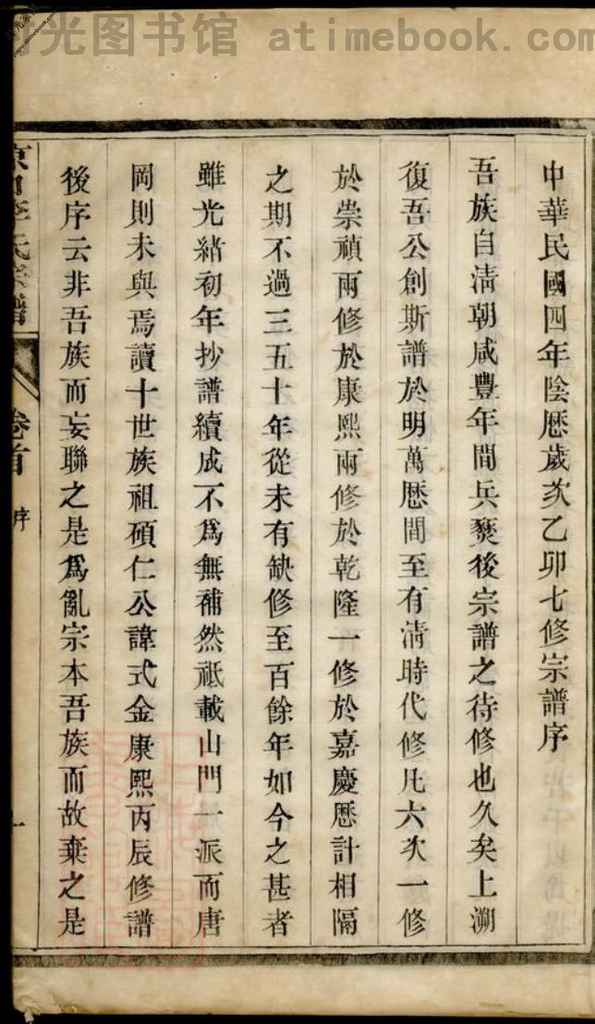 时光图书馆 atimebook.com
中華民國四年陰厯歲次乙卯七修宗譜序
吾族自淸朝咸豐年間兵燹後宗譜之待修也久矣上溯
復吾公創斯譜於明萬厯間至有淸時代修凡六次一修
於崇禎兩修於康熙兩修於乾隆一修於嘉慶厯計相隔
之期不過三五十年從未有缺修至百餘年如今之甚者
雖光緒初年抄譜續成不爲無補然祗載山門一派而唐
岡則未與焉讀十世族祖碩仁公諱式金康熙丙辰修譜
後序云非吾族而妄聯之是爲亂宗本吾族而故棄之是
李氏宗譜
卷首
序
一